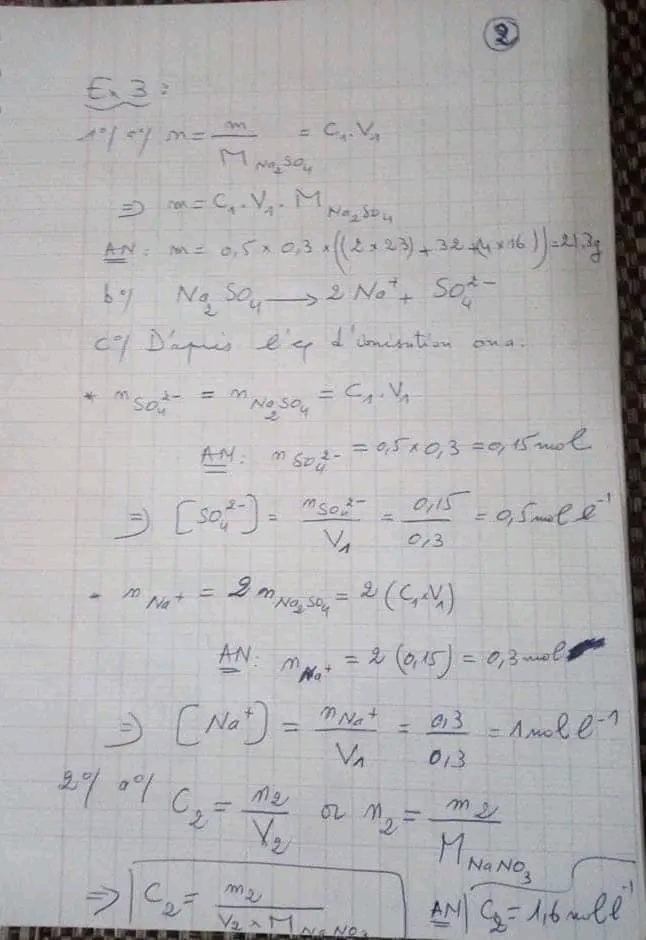 2
Ex 3 :
1°/ a°/ n = m / M Na₂SO₄ = C₁.V₁
⇒ m = C₁.V₁.M Na₂SO₄
AN: m = 0,5 × 0,3 × ((2 × 23) + 32 + (4 × 16)) = 21,3g
b°/ Na₂SO₄ → 2 Na⁺ + SO₄²⁻
c°/ D'après l'eq d'ionisation on a.
* n SO₄²⁻ = n Na₂SO₄ = C₁.V₁
AN: n SO₄²⁻ = 0,5 × 0,3 = 0,15 mol
⇒ [SO₄²⁻] = n SO₄²⁻ / V₁ = 0,15 / 0,3 = 0,5 mol l⁻¹
- n Na⁺ = 2 n Na₂SO₄ = 2 (C₁.V₁)
AN: n Na⁺ = 2 (0,15) = 0,3 mol
⇒ [Na⁺] = n Na⁺ / V₁ = 0,3 / 0,3 = 1 mol l⁻¹
2°/ a°/ C₂ = n₂ / V₂ or n₂ = m₂ / M NaNO₃
⇒ C₂ = m₂ / V₂ × M NaNO₃ AN C₂ = 1,6 mol l⁻¹